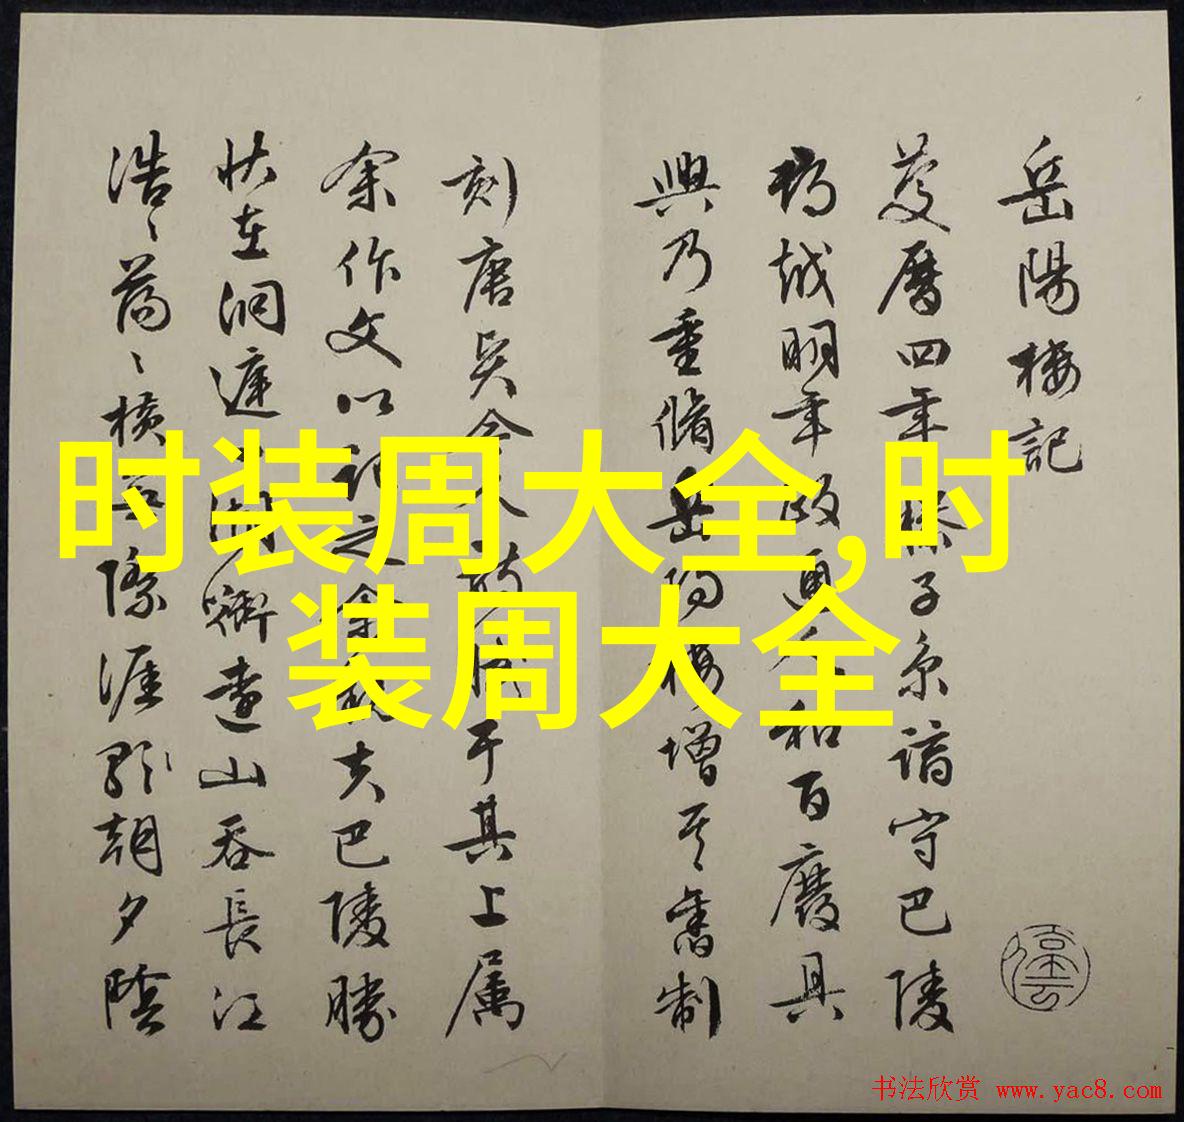 岳陽樓記
慶曆四年滕子京謫守巴陵
郡越明年政通人和百廢具
興乃重脩岳陽樓增其舊制
刻唐賢今人詩賦于其上屬
余作文以記之余觀夫巴陵勝
狀在洞庭一湖銜遠山吞長江
浩〻蕩〻橫無際涯朝夕陰
时装周大全,时
装周大全
书法欣赏 www.yac8.com